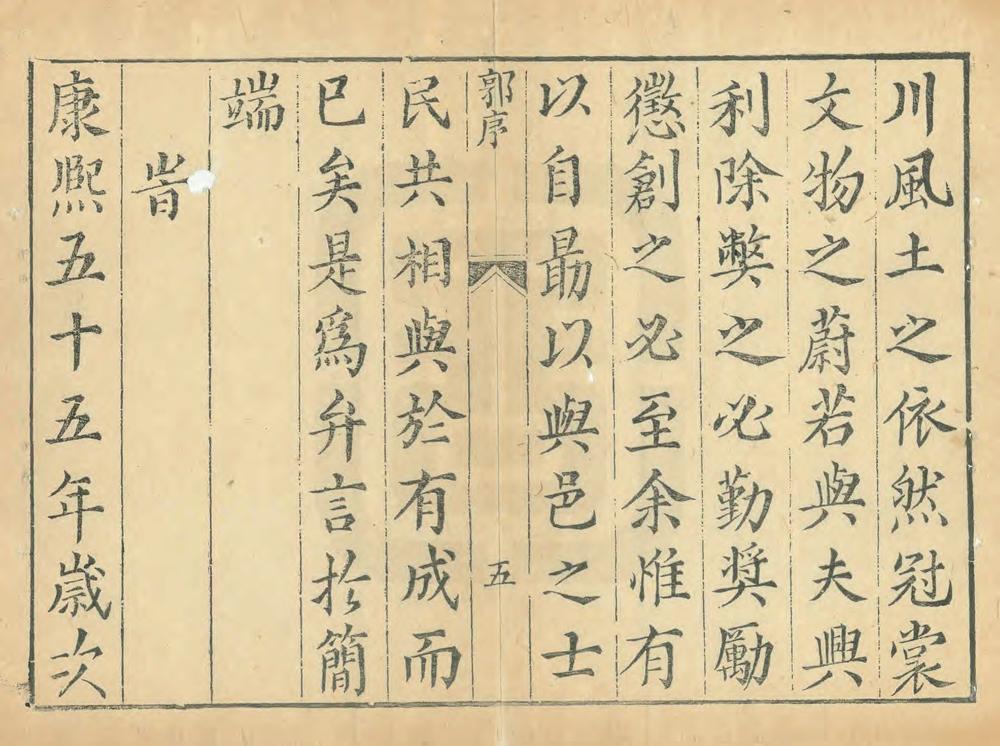 川風土之依然冠裳
文物之蔚若與夫興
利除弊之必勤奨勵
懲創之必至余惟有
以自勗以與邑之士
郭序
五
民共相與於有成而
已矣是爲弁言於簡
端
旹
康熈五十五年歲次